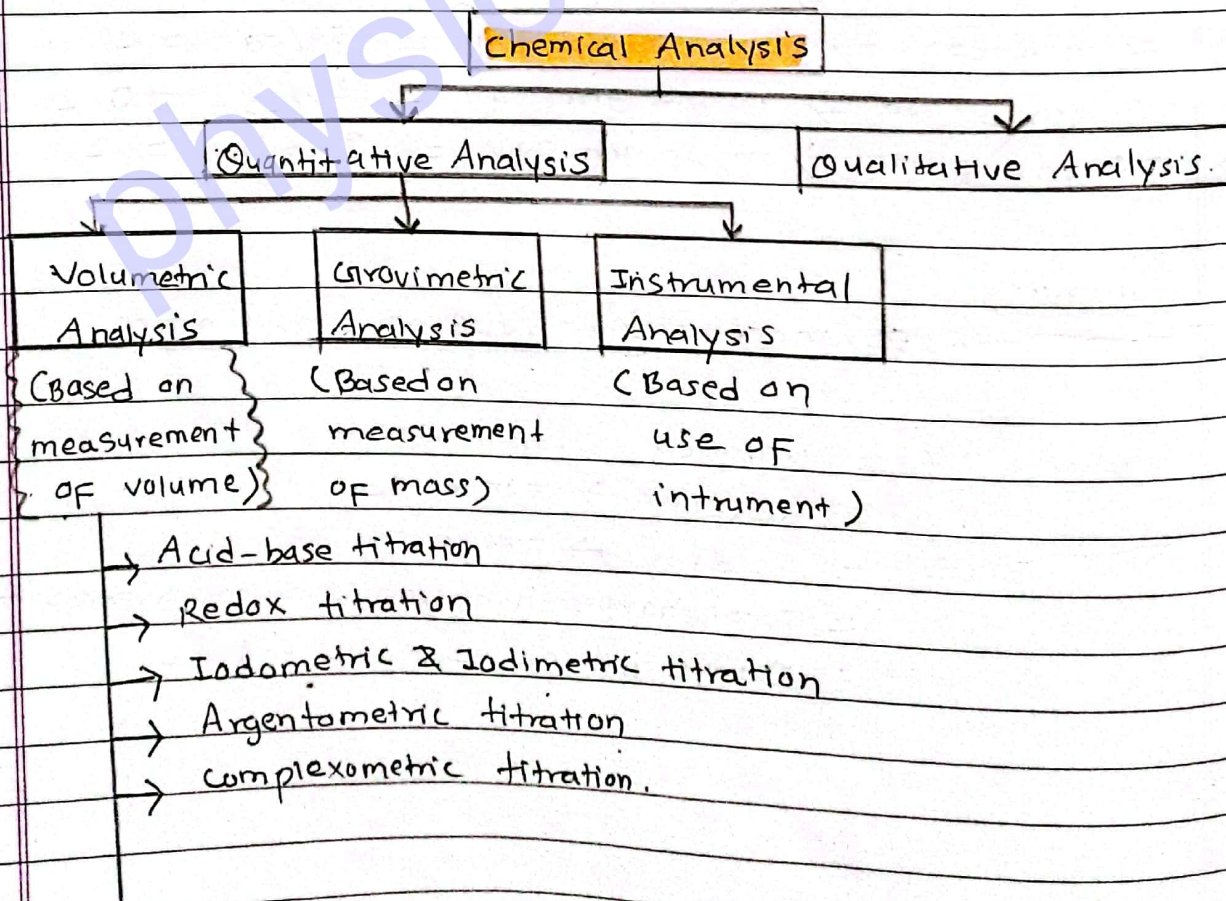 Chemical Analysis
Quantitative Analysis
Qualitative Analysis.
Volumetric
Analysis
(Based on
measurement
of volume)
Gravimetric
Analysis
(Based on
measurement
of mass)
Instrumental
Analysis
(Based on
use of
intrument)
→ Acid-base titration
→ Redox titration
→ Iodometric & Iodimetric titration
→ Argentometric titration
→ complexometric titration.